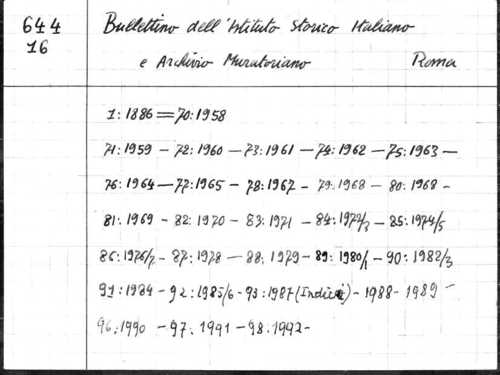 644
16
Bullettino dell'Istituto Storico Italiano
e Archivio Muratoriano Roma
1:1886=70:1958
71:1959 - 72:1960 - 73:1961 - 74:1962 - 75:1963 -
76:1964 - 77:1965 - 78:1967 - 79:1968 - 80:1968 -
81:1969 - 82:1970 - 83:1971 - 84:1972/3 - 85:1974/5
86:1976/7 - 87:1978 - 88:1979 - 89:1980/1 - 90:1982/3
91:1984 - 92:1985/6 - 93:1987 (Indici) - 1988 - 1989 -
96:1990 - 97:1991 - 98:1992 -